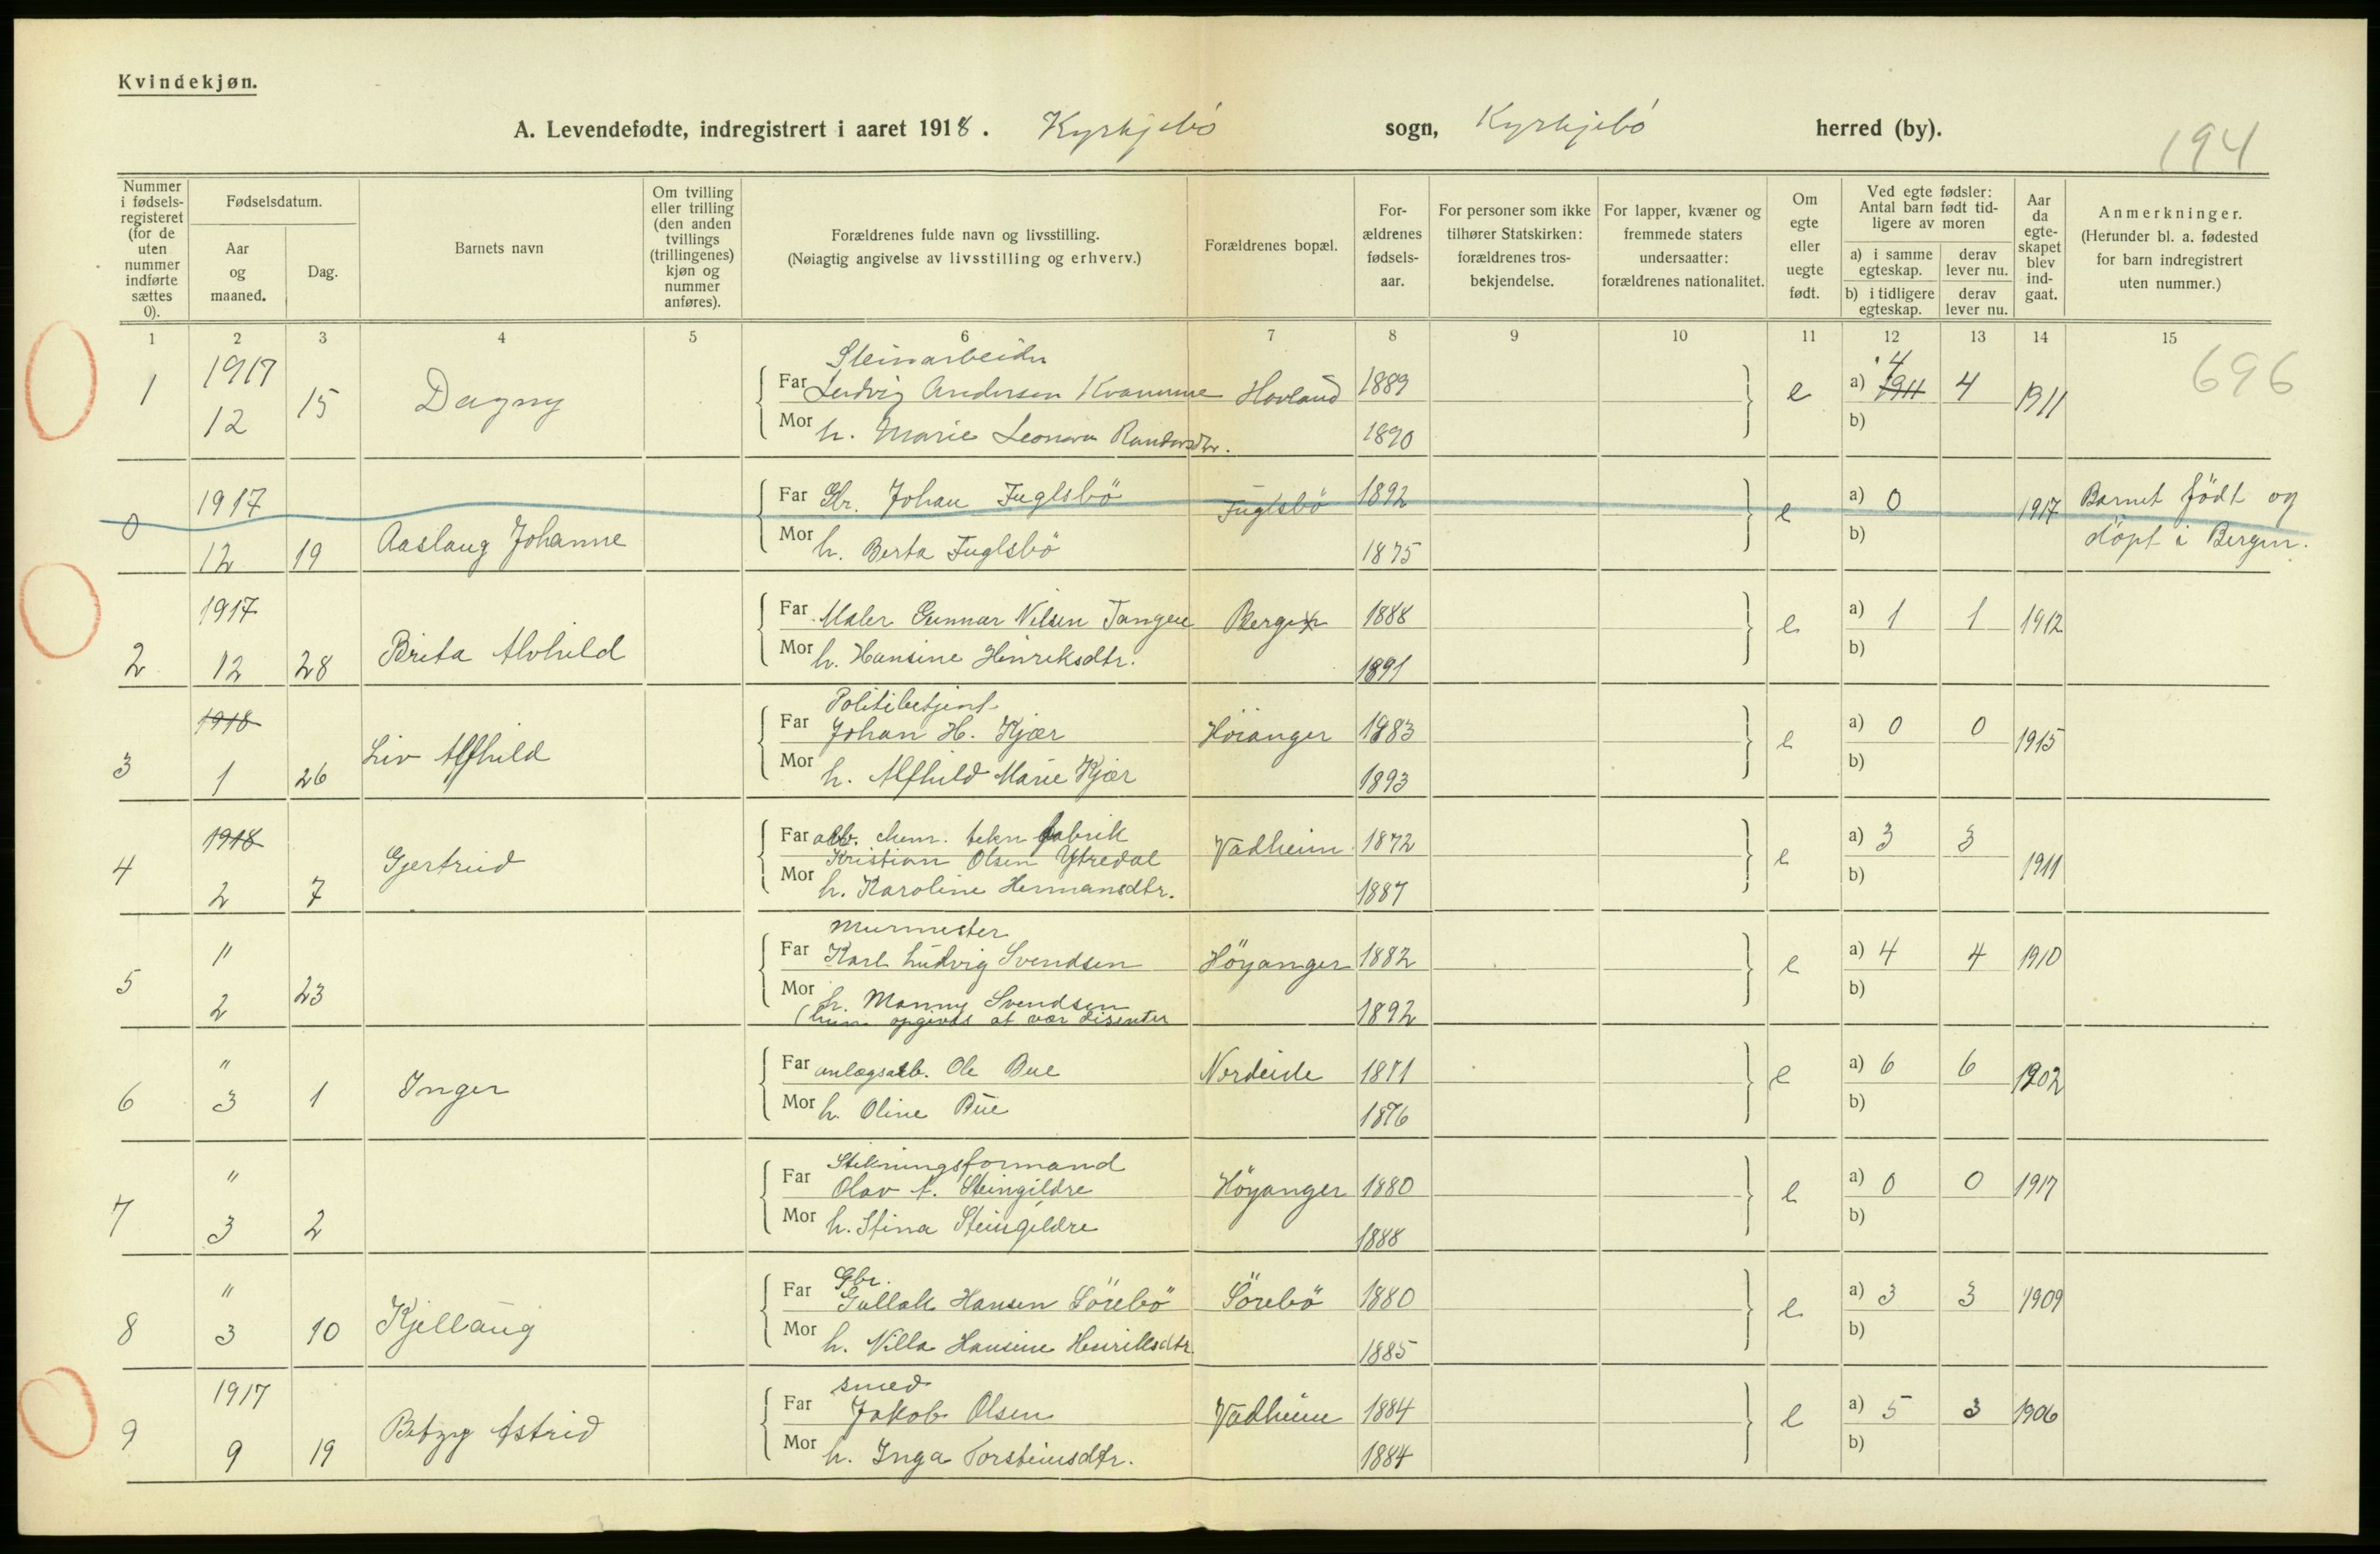 Kvindekjøn.
A. Levendefødte, indregistrert i aaret 1918. Kyrkjebö sogn, Kyrkjebö herred (by).
194
Nummer i fødsels-registeret (for de uten nummer indførte sættes 0).
Fødselsdatum.
Aar og maaned.
Dag.
Barnets navn
Om tvilling eller trilling (den anden tvillings (trillingenes) kjøn og nummer anføres).
Forældrenes fulde navn og livsstilling.
(Nøiagtig angivelse av livsstilling og erhverv.)
Forældrenes bopæl.
For-ældrenes fødsels-aar.
For personer som ikke tilhører Statskirken: forældrenes tros-bekjendelse.
For lapper, kvæner og fremmede staters undersaatter: forældrenes nationalitet.
Om egte eller uegte født.
Ved egte fødsler: Antal barn født tid-ligere av moren
a) i samme egteskap.
derav lever nu.
b) i tidligere egteskap.
derav lever nu.
Aar da egte-skapet blev ind-gaat.
Anmerkninger.
(Herunder bl. a. fødested for barn indregistrert uten nummer.)
1 2 3 4 5 6 7 8 9 10 11 12 13 14 15
696
Steinarbeider
1 1917 12 15 Dagny
Far Ludvig Andersen Kvamme Hovland 1889 e a) 1911 4 4 1911
Mor h. Marie Leonora 1890 b)
0 1917 12 19 Aaslaug Johanne
Far Gbr. Johan Fuglsbö Fuglsbö 1892 e a) 0 1917 Barnet födt og
Mor h. Berta Fuglsbö 1875 b) döpt i Bergen.
2 1917 12 28 Brita Alvhild
Far Maler Gunnar Nilsen Tangen Bergen 1888 e a) 1 1 1912
Mor h. Hansine Hinriksdtr. 1891 b)
Politibetjent
3 1918 1 26 Liv Alfhild
Far Johan H. Kjær Höianger 1883 e a) 0 0 1915
Mor h. Alfhild Marie Kjær 1893 b)
4 1918 2 7 Gjertrud
Far arb. chem. tekn fabrik Vadheim 1872 e a) 3 3 1911
Kristian Olsen Ytredal
Mor h. Karoline Hermansdtr. 1887 b)
Murmester
5 " 2 23
Far Karl Ludvig Svendsen Höyanger 1882 e a) 4 4 1910
Mor h. Manny Svendsen 1892 b)
(hun opgives at vær disenter
6 " 3 1 Inger
Far anlægsarb. Ole Bue Nordeide 1871 e a) 6 6 1902
Mor h. Oline Bue 1876 b)
Stikningsformand
7 " 3 2
Far Olav A. Steingildre Höyanger 1880 e a) 0 0 1917
Mor h. Stina Steingildre 1888 b)
Gbr.
8 " 3 10 Kjellaug
Far Gullak Hansen Sörebö Sörebö 1880 e a) 3 3 1909
Mor h. Villa Hansine Henriksdtr 1885 b)
smed
9 1917 9 19 Betzy Astrid
Far Jakob Olsen Vadheim 1884 e a) 5 3 1906
Mor h. Inga Torsteinsdtr. 1884 b)